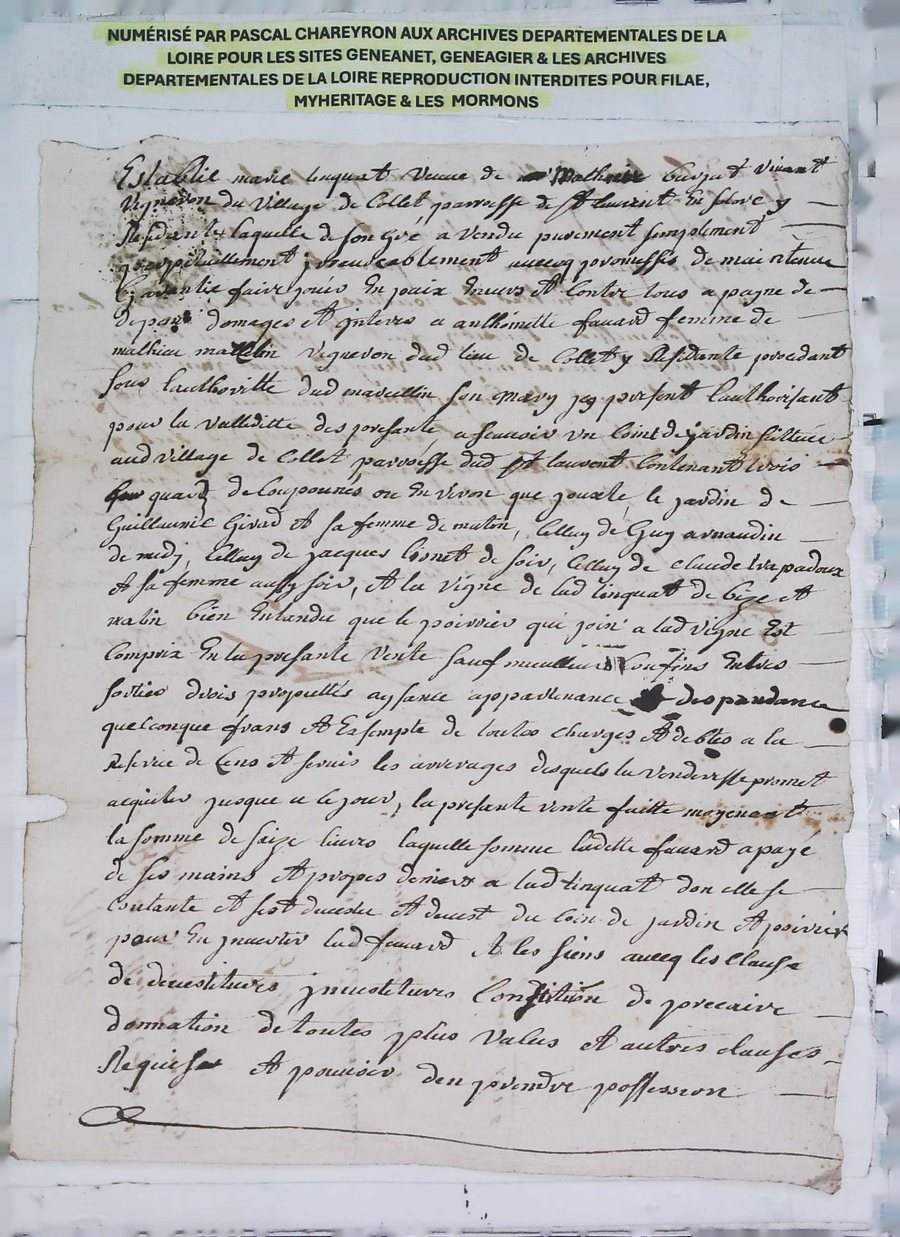 NUMÉRISÉ PAR PASCAL CHAREYRON AUX ARCHIVES DEPARTEMENTALES DE LA
LOIRE POUR LES SITES GENEANET, GENEAGIER & LES ARCHIVES
DEPARTEMENTALES DE LA LOIRE REPRODUCTION INTERDITES POUR FILAE,
MYHERITAGE & LES MORMONS
Establie marie linquat veuve de Mathieu vivant
Vigneron du village de Collet, parroisse de St laurent En
Residante laquelle de son gre a vendu purement simplement
perpetuellement jrrevocablement avecq promesses de maintenue
Garantie faire jouir En paix Envers Et Contre tous a payne de
depans domages Et jnteres a anthoinette fauard femme de
mathieu Vigneron dud lieu de Collet y Residante procedant
sous lauthoritte dud son mary jcy present Lauthorisant
pour la validitte des presante, a scavoir un Coint de jardin scittué
aud village de Collet parroisse dud St laurent Contenant trois
quart de Coupounés ou Environ que jouxte, le jardin de
Guillaume Girad Et sa femme de matin, Celluy de Guy arnaudin
de midy, Celluy de jacques lionet de soir, Celluy de claude trapadoux
Et sa femme aussy soir, Et la vigne de lad linquat de bize Et
matin bien Entandu que le poirier qui join a lad vigne Est
Comprix En la presante vente sauf meilleurs Confins Entres
sorties drois propriettés aysance appartenance despandance
quelconque frans Et Exsempte de toutes charges Et debtes a la
Reserve de Cens Et servis les arrerages desquels la venderesse promet
acquiter jusque a ce jour, la presante vente faitte moyenant
la somme de saize livres laquelle somme ladette fauard a payé
de ses mains Et propres deniers a lad linquat don elle se
Contante Et sest devestu Et devest du Coin de jardin Et poirier
pour En jnvestir lad fauard Et les siens avecq les Clause
de devestitures jnvestitures Constitution de precaire
donnation de toutes plus values Et autres clauses
Requises Et pouvoir den prendre possession